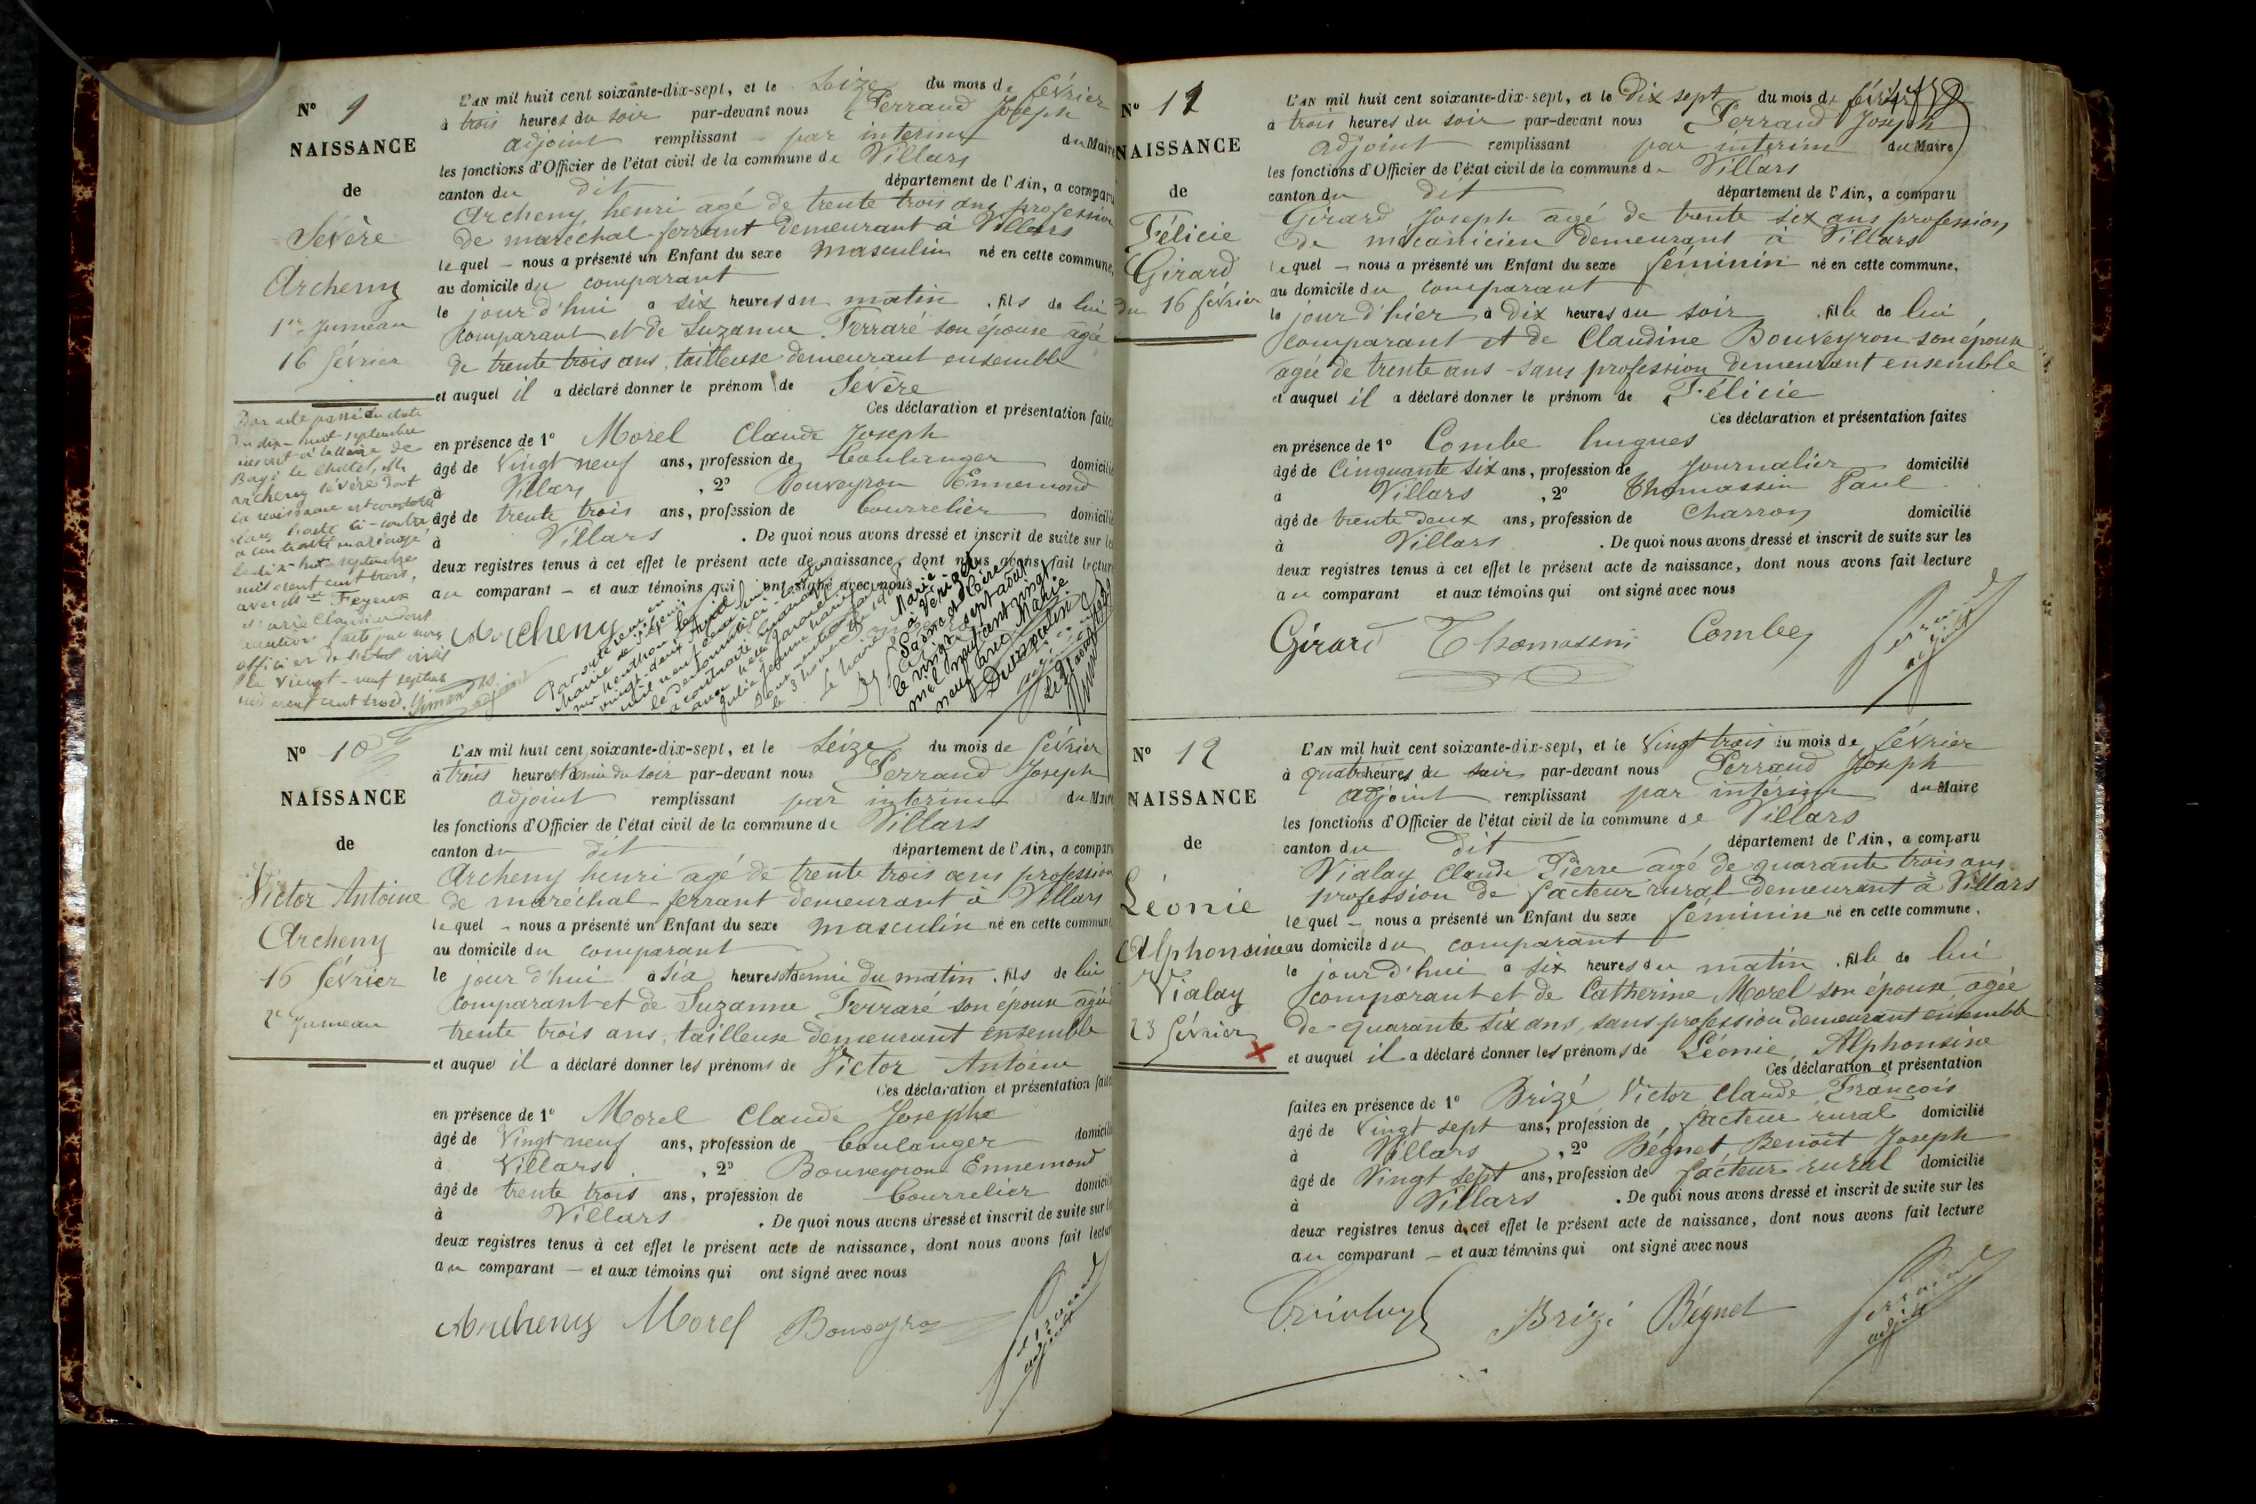 N° 9
NAISSANCE
de
Sévère
Archeny
1er Jumeau
16 février
L'AN mil huit cent soixante-dix-sept, et le Seize du mois de février
à trois heures du soir par-devant nous Perraud Joseph
adjoint remplissant par interim du Maire
les fonctions d'Officier de l'état civil de la commune de Villars
canton du dit département de l'Ain, a comparu
Archeny henri agé de trente trois ans profession
de maréchal-ferrant demeurant à Villars
lequel – nous a présenté un Enfant du sexe masculin né en cette commune,
au domicile du comparant
le jour d'hui à six heures du matin, fils de lui
comparant et de Suzanne Ferraré son épouse agée
de trente trois ans, tailleuse demeurant ensemble
et auquel il a déclaré donner le prénom de Sévère
Ces déclaration et présentation faites
en présence de 1° Morel Claude Joseph
âgé de vingt neuf ans, profession de boulanger domicilié
à Villars, 2° Bouveyron Ennemond
âgé de trente trois ans, profession de bourrelier domicilié
à Villars. De quoi nous avons dressé et inscrit de suite sur les
deux registres tenus à cet effet le présent acte de naissance, dont nous avons fait lecture
au comparant – et aux témoins qui ont signé avec nous
Archeny
Par acte passé en date
du dix-huit septembre
inscrit à la Mairie de
Bagé le Chatel, M.
Archeny Sévère dont
la naissance est constatée
dans l'acte ci-contre
a contracté mariage
le dix-huit septembre
mil neuf cent trois,
avec Mlle Feyeux
Marie Claudine dont
mention faite par nous
officier de l'état civil
le vingt-neuf septembre
mil neuf cent trois.
adjoint
N° 10
NAISSANCE
de
Victor Antoine
Archeny
16 février
2e Jumeau
L'AN mil huit cent soixante-dix-sept, et le Seize du mois de février
à trois heures et demie du soir par-devant nous Perraud Joseph
adjoint remplissant par interim du Maire
les fonctions d'Officier de l'état civil de la commune de Villars
canton du dit département de l'Ain, a comparu
Archeny henri agé de trente trois ans profession
de maréchal-ferrant demeurant à Villars
lequel – nous a présenté un Enfant du sexe masculin né en cette commune
au domicile du comparant
le jour d'hui à six heures et demie du matin. fils de lui
comparant et de Suzanne Ferraré son épouse agée
trente trois ans, tailleuse demeurant ensemble
et auquel il a déclaré donner les prénoms de Victor Antoine
Ces déclaration et présentation faites
en présence de 1° Morel Claude Joseph
âgé de vingt neuf ans, profession de boulanger domicilié
à Villars, 2° Bouveyron Ennemond
âgé de trente trois ans, profession de bourrelier domicilié
à Villars. De quoi nous avons dressé et inscrit de suite sur les
deux registres tenus à cet effet le présent acte de naissance, dont nous avons fait lecture
au comparant – et aux témoins qui ont signé avec nous
Archeny Morel Bouveyron Perraud
adjoint
N° 11
NAISSANCE
de
Félicie
Girard
du 16 février
L'AN mil huit cent soixante-dix-sept, et le Dix sept du mois de février
à trois heures du soir par-devant nous Perraud Joseph
adjoint remplissant par interim du Maire
les fonctions d'Officier de l'état civil de la commune de Villars
canton du dit département de l'Ain, a comparu
Girard Joseph agé de trente six ans profession
de mécanicien demeurant à Villars
lequel – nous a présenté un Enfant du sexe féminin né en cette commune,
au domicile du comparant
le jour d'hier à dix heures du soir, fille de lui
comparant et de Claudine Bouveyron son épouse
agée de trente ans – sans profession demeurant ensemble
et auquel il a déclaré donner le prénom de Félicie
Ces déclaration et présentation faites
en présence de 1° Combe hugues
âgé de Cinquante six ans, profession de journalier domicilié
à Villars, 2° Thomassin Paul
âgé de trente deux ans, profession de Charron domicilié
à Villars. De quoi nous avons dressé et inscrit de suite sur les
deux registres tenus à cet effet le présent acte de naissance, dont nous avons fait lecture
au comparant et aux témoins qui ont signé avec nous
Girard Thomassin Combe Perraud
adjoint
N° 12
NAISSANCE
de
Léonie
Alphonsine
Vialay
23 février
L'AN mil huit cent soixante-dix-sept, et le Vingt trois du mois de février
à quatre heures du soir par-devant nous Perraud Joseph
adjoint remplissant par intérim du Maire
les fonctions d'Officier de l'état civil de la commune de Villars
canton du dit département de l'Ain, a comparu
Vialay Claude Pierre agé de quarante trois ans
profession de facteur rural demeurant à Villars
lequel – nous a présenté un Enfant du sexe féminin né en cette commune,
au domicile du comparant
le jour d'hui à six heures du matin, fille de lui
comparant et de Catherine Morel son épouse agée
de quarante six ans, sans profession demeurant ensemble
et auquel il a déclaré donner les prénoms de Léonie, Alphonsine
Ces déclaration et présentation
faites en présence de 1° Brizé Victor Claude François
âgé de vingt sept ans, profession de facteur rural domicilié
à Villars, 2° Bégnet Benoît Joseph
âgé de Vingt sept ans, profession de facteur rural domicilié
à Villars. De quoi nous avons dressé et inscrit de suite sur les
deux registres tenus à cet effet le présent acte de naissance, dont nous avons fait lecture
au comparant – et aux témoins qui ont signé avec nous
Brizé Bégnet Perraud
adjoint